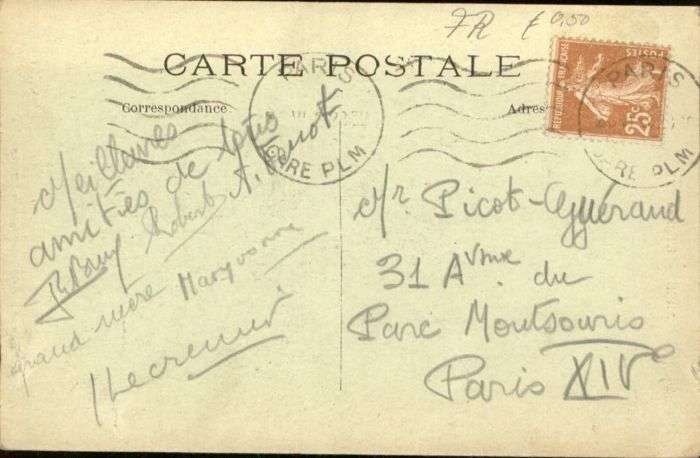 FR £ 0,50
CARTE POSTALE
Correspondance
Adres
PARIS
GARE PLM
REPUBLIQUE FRANÇAISE
POSTES
25c
PARIS
GARE PLM
Meilleures
amitiés de tous
Robert A.
grand mère Maryvonne
Mr Picot-Guéraud
31 Avnue du
Parc Montsouris
Paris XIVe